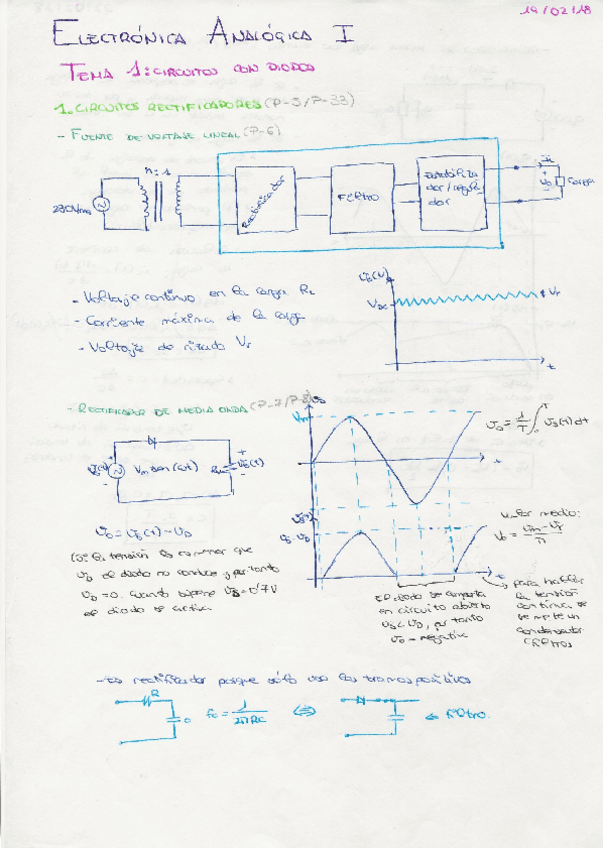 19/02/18
ELECTRÓNICA ANALÓGICA I
TEMA 1: CIRCUITOS CON DIODOS
1. CIRCUITOS RECTIFICADORES (P-5/P-33)
- FUENTE DE VOLTAJE LINEAL (P-6)
n:1
Rectificador
Filtro
Estabiliza
dor/regula
dor
Carga
- Voltaje continuo en la carga RL
- Corriente máxima de la carga
- Voltaje de rizado Vr
VDC
Vr
t
- RECTIFICADOR DE MEDIA ONDA (P-7/P-8)
Vm sen(ωt)
Vo = Vs(t) - VD
Si la tensión es menor que
VD el diodo no conduce y por tanto
el diodo se activa
El diodo se comporta
en circuito abierto
Vs < VD, por tanto
Vo - negativa
V. por medio:
para hallar
la tensión
continua se
se mete un
condensador
(filtros)
- Es rectificador porque sólo usa los tramos positivos
R
C
fc = 1/2πRC
⇔
← Filtro.